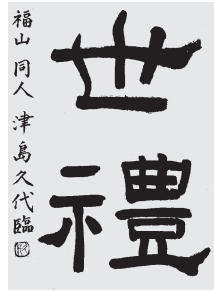 世禮
福山 同人 津島久代臨